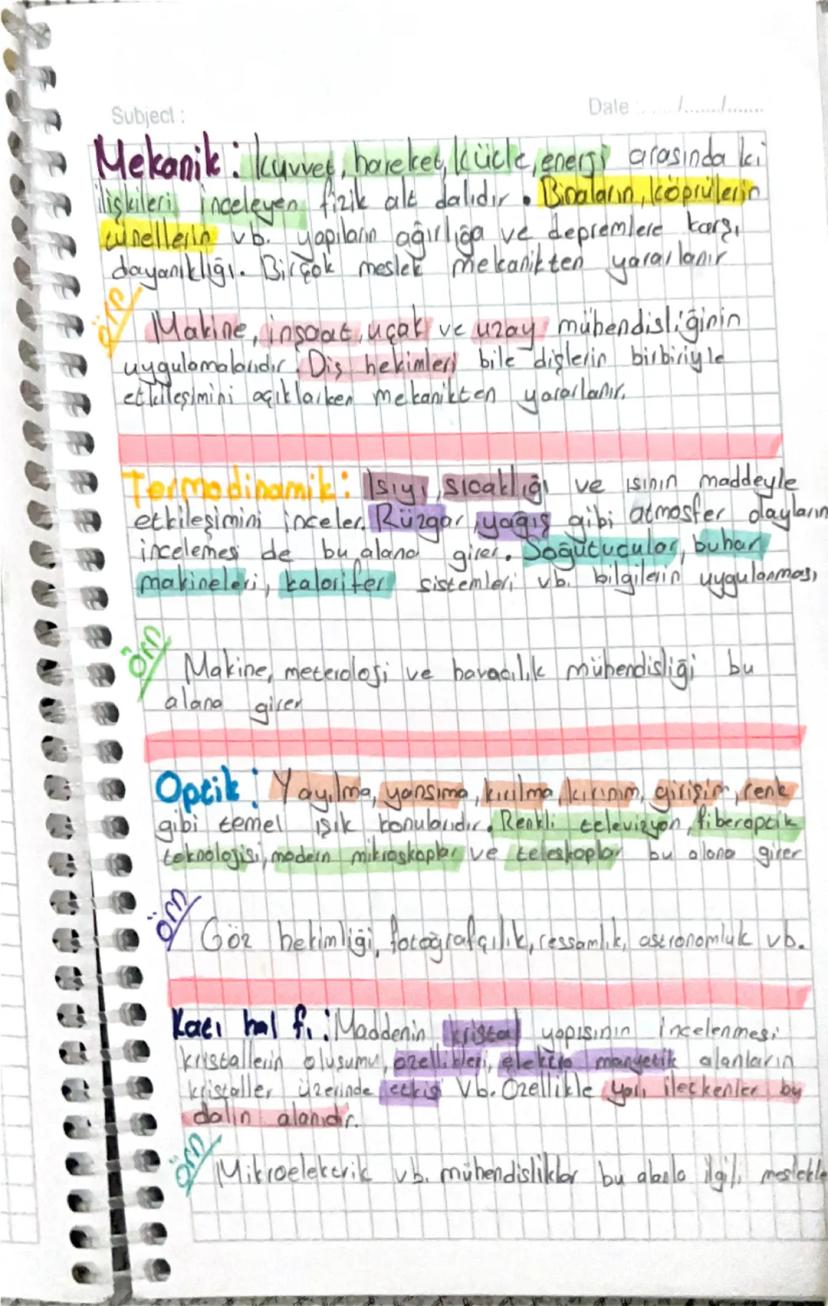 Subject :
Date : ..../......./.......
Mekanik: Kuvvet, hareket, kütle, enerji arasında ki
ilişkileri inceleyen fizik alt dalıdır. Binaların, köprülerin
tünellerin vb. yapıların ağırlığa ve depremlere karşı
dayanıklığı. Birçok meslek mekanikten yararlanır
örn
Makine, inşaat, uçak ve uzay mühendisliğinin
uygulamalarıdır. Diş hekimleri bile dişlerin birbiriyle
etkileşimini açıklarken mekanikten yararlanır.
Termodinamik: Isıyı, sıcaklığı ve ısının maddeyle
etkileşimini inceler. Rüzgar, yağış gibi atmosfer olayların
incelemesi de bu alana girer. Soğutucular, buhar
makineleri, kalorifer sistemleri vb. bilgilerin uygulanması
örn
Makine, meteroloji ve havacılık mühendisliği bu
alana girer
Optik: Yayılma, yansıma, kırılma, kırınım, girişim, renk
gibi temel ışık konularıdır. Renkli televizyon, fiberoptik
teknolojisi, modern mikroskoplar ve teleskoplar bu alana girer
örn
Göz hekimliği, fotoğrafçılık, ressamlık, astronomluk vb.
Katı hal f.: Maddenin kristal yapısının incelenmesi
kristallerin oluşumu, özellikleri, elektro manyetik alanların
kristaller üzerinde etkisi vb. Özellikle yarı iletkenler bu
dalın alanıdır.
örn
Mikroelektrik vb. mühendislikler bu alanla ilgili meslekle